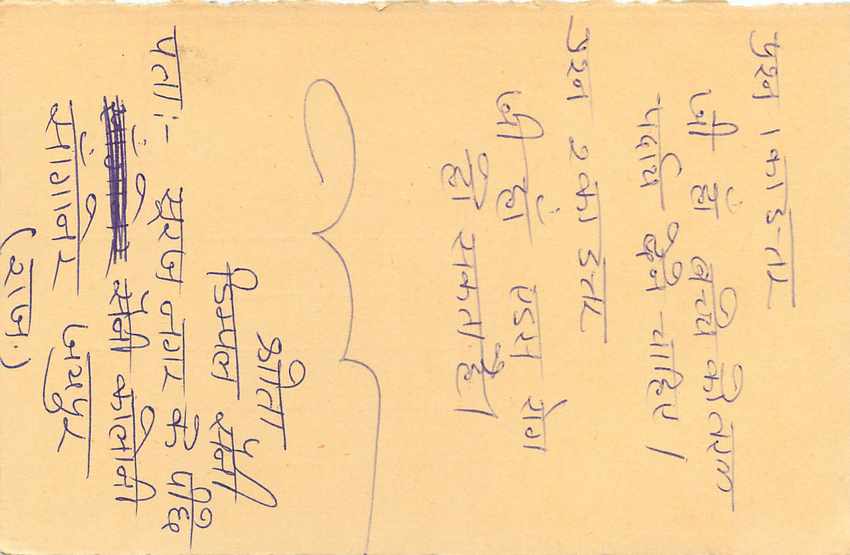 प्रश्न 1 का उत्तर
जी हां बच्चे को तरल
पदार्थ देने चाहिए।
प्रश्न 2 का उत्तर
जी हां एडस रोग
हो सकता है।
श्रोता
डिम्पल सैनी
पता:- सूरज नगर के पीछे
सैनी कोलोनी
सांगानेर जयपुर
(राज.)